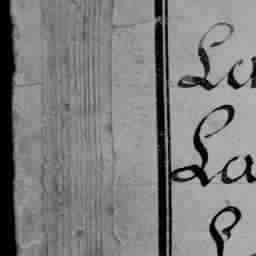 La
La
L